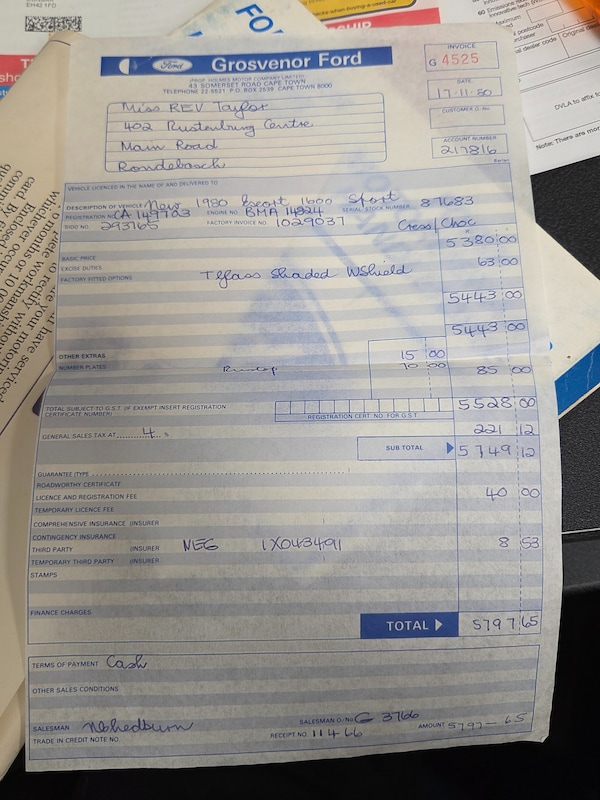 EH42 1FD
FO
checks when buying a used car
SHIP
60
Ford Grosvenor Ford
(PROP. HOLMES MOTOR COMPANY LIMITED)
43 SOMERSET ROAD CAPE TOWN
TELEPHONE 22-6821 P.O. BOX 2539 CAPE TOWN 8000
INVOICE
G 4525
DATE
17-11-80
CUSTOMER O. No.
ACCOUNT NUMBER
217816
Miss REV Taylor
402 Rustenburg Centre
Main Road
Rondebosch
VEHICLE LICENCED IN THE NAME OF AND DELIVERED TO
DESCRIPTION OF VEHICLE New 1980 Escort 1600 Sport SERIAL STOCK NUMBER 87683
REGISTRATION NO. CA 149703 ENGINE NO. BMA 14824
SIDO NO. 293765 FACTORY INVOICE NO. 1029037 Cress/Choc
BASIC PRICE 5380 00
EXCISE DUTIES 63 00
FACTORY FITTED OPTIONS Tglass Shaded WShield
5443 00
5443 00
OTHER EXTRAS 15 00
NUMBER PLATES 70 00 85 00
TOTAL SUBJECT TO G.S.T. (IF EXEMPT INSERT REGISTRATION CERTIFICATE NUMBER) 5528 00
REGISTRATION CERT. NO. FOR G.S.T.
GENERAL SALES TAX AT 4 % 221 12
SUB TOTAL 5749 12
GUARANTEE (TYPE
ROADWORTHY CERTIFICATE
LICENCE AND REGISTRATION FEE 40 00
TEMPORARY LICENCE FEE
COMPREHENSIVE INSURANCE (INSURER
CONTINGENCY INSURANCE
THIRD PARTY (INSURER NEG 1X043491 8 53
TEMPORARY THIRD PARTY (INSURER
STAMPS
FINANCE CHARGES
TOTAL 5797 65
TERMS OF PAYMENT Cash
OTHER SALES CONDITIONS
SALESMAN SALESMAN O/No. G 3766
TRADE IN CREDIT NOTE NO. RECEIPT NO. 11466 AMOUNT 5797-65
DVLA to
Note: There are mor